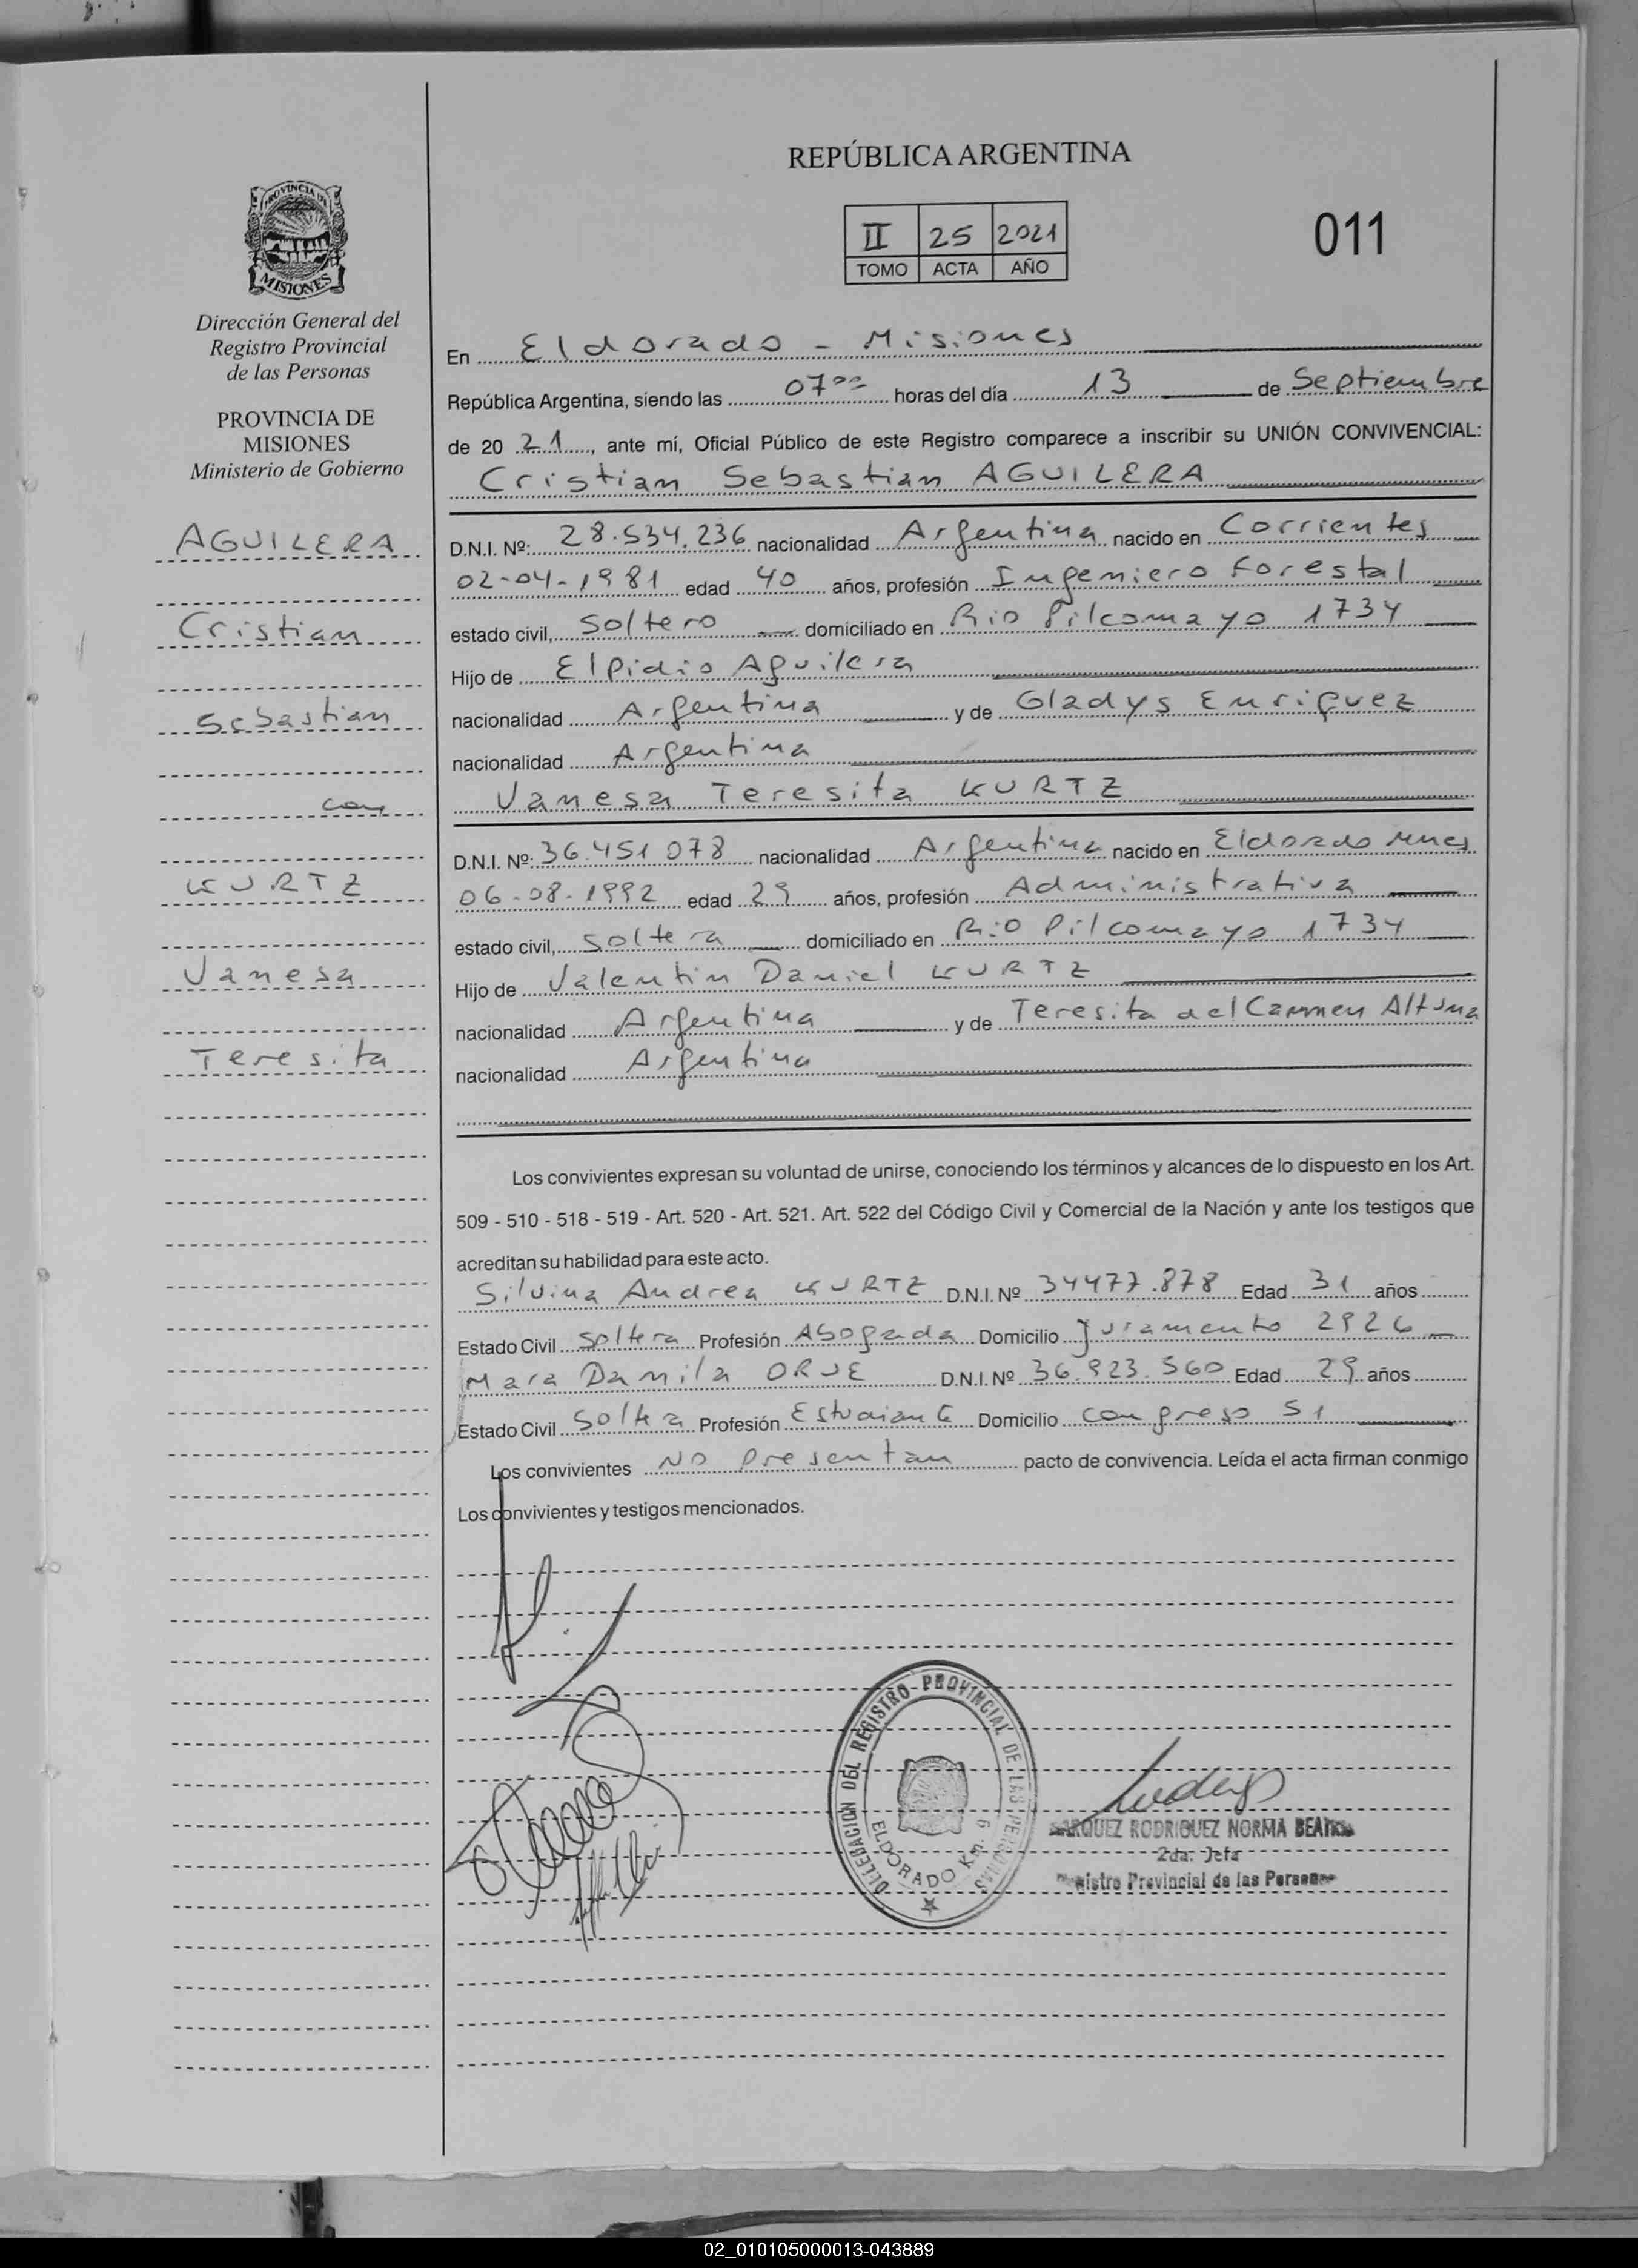 REPÚBLICA ARGENTINA
II 25 2021
TOMO ACTA AÑO
011
PROVINCIA DE
MISIONES
Dirección General del
Registro Provincial
de las Personas
PROVINCIA DE
MISIONES
Ministerio de Gobierno
AGUILERA
Cristian
Sebastian
con
KURTZ
Vanesa
Teresita
En Eldorado - Misiones
República Argentina, siendo las 07⁰⁰ horas del día 13 de Septiembre
de 20 21, ante mí, Oficial Público de este Registro comparece a inscribir su UNIÓN CONVIVENCIAL:
Cristian Sebastian AGUILERA
D.N.I. Nº: 28.534.236 nacionalidad Argentina nacido en Corrientes
02-04-1981 edad 40 años, profesión Ingeniero Forestal
estado civil, Soltero domiciliado en Rio Pilcomayo 1734
Hijo de Elpidio Aguilera
nacionalidad Argentina y de Gladys Enriquez
nacionalidad Argentina
Vanesa Teresita KURTZ
D.N.I. Nº: 36.451.078 nacionalidad Argentina nacido en Eldorado Mnes
06-08-1992 edad 29 años, profesión Administrativa
estado civil, Soltera domiciliado en Rio Pilcomayo 1734
Hijo de Valentin Daniel KURTZ
nacionalidad Argentina y de Teresita del Carmen Altuna
nacionalidad Argentina
Los convivientes expresan su voluntad de unirse, conociendo los términos y alcances de lo dispuesto en los Art.
509 - 510 - 518 - 519 - Art. 520 - Art. 521. Art. 522 del Código Civil y Comercial de la Nación y ante los testigos que
acreditan su habilidad para este acto.
Silvina Andrea KURTZ D.N.I. Nº 34477.878 Edad 31 años
Estado Civil Soltera Profesión Abogada Domicilio Juramento 2926
Mara Damila ORUE D.N.I. Nº 36.923.560 Edad 29 años
Estado Civil Soltera Profesión Estudiante Domicilio Congreso 51
Los convivientes No presentan pacto de convivencia. Leída el acta firman conmigo
Los convivientes y testigos mencionados.
DELEGACION DEL REGISTRO PROVINCIAL DE LAS PERSONAS
ELDORADO Km. 9
MARQUEZ RODRIGUEZ NORMA BEATRIZ
2da. Jefa
Registro Provincial de las Personas
02_010105000013-043889